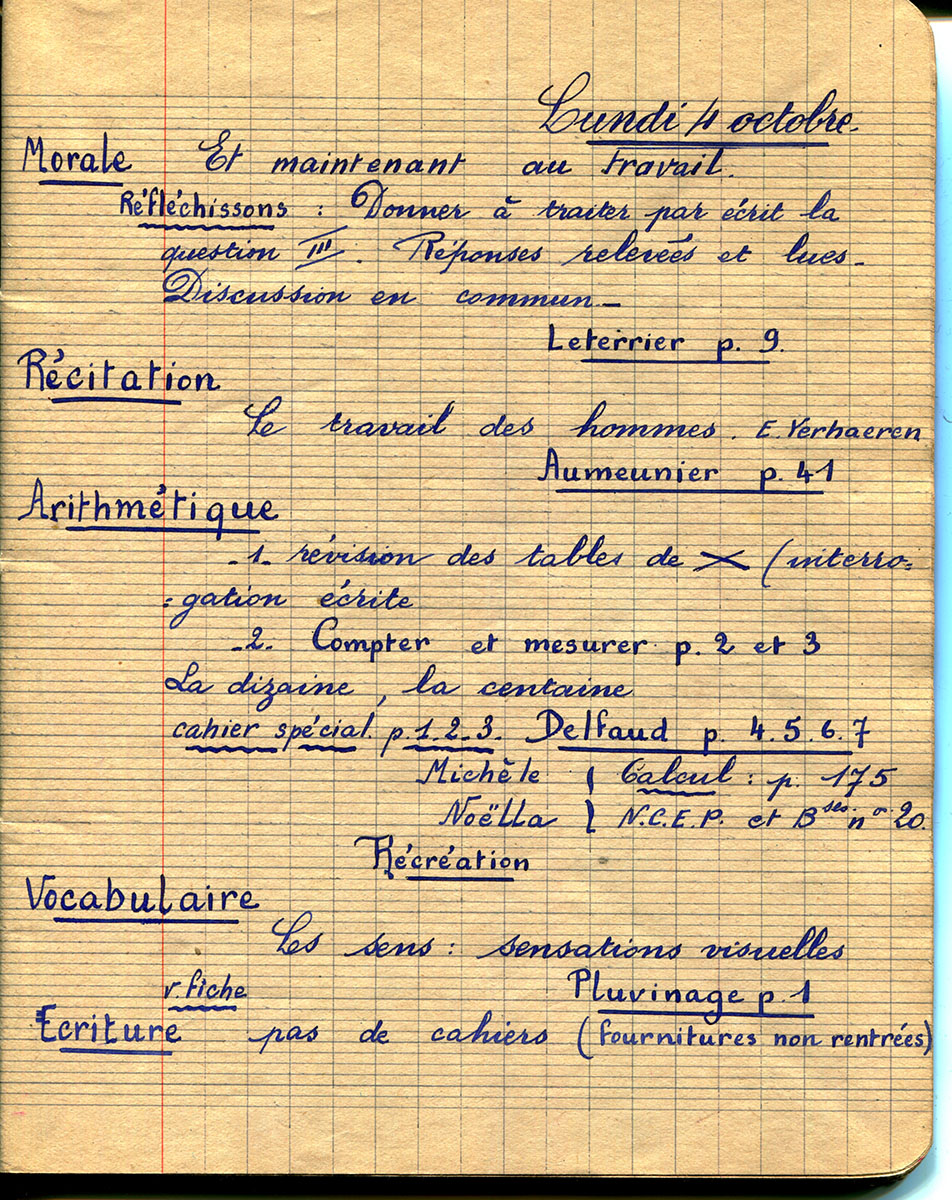 Lundi 4 octobre.
Morale Et maintenant au travail.
Réfléchissons : Donner à traiter par écrit la
question III. Réponses relevées et lues.
Discussion en commun.
Leterrier p. 9.
Récitation
Le travail des hommes. E. Verhaeren
Aumeunier p. 41
Arithmétique
-1. révision des tables de × (interro-
-gation écrite
-2. Compter et mesurer p. 2 et 3
La dizaine, la centaine
cahier spécial. p. 1.2.3. Delfaud p. 4.5.6.7
Michèle } Calcul : p. 175
Noëlla } N.C.E.P. et B ses nos 20.
Récréation
Vocabulaire
Les sens : sensations visuelles
v. fiche Pluvinage p. 1
Ecriture pas de cahiers (fournitures non rentrées)